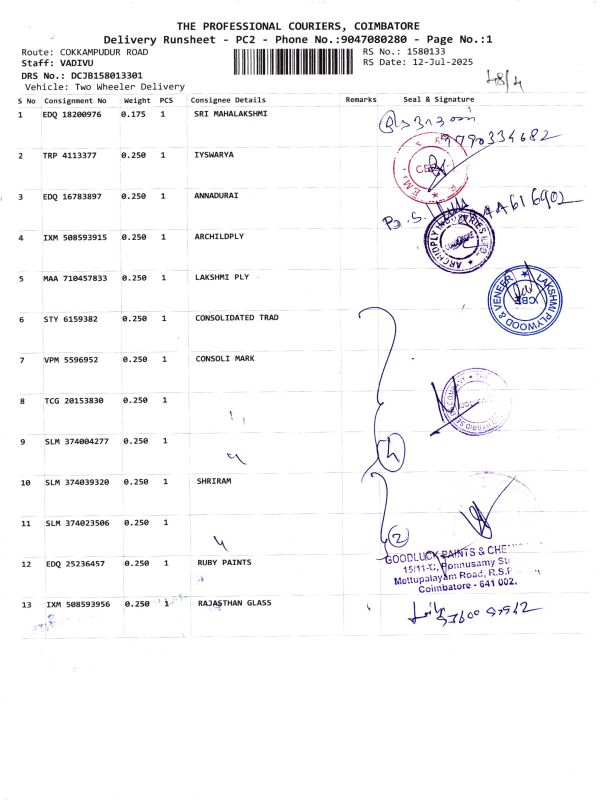 THE PROFESSIONAL COURIERS, COIMBATORE
Delivery Runsheet - PC2 - Phone No.:9047080280 - Page No.:1
Route: COKKAMPUDUR ROAD RS No.: 1580133
Staff: VADIVU RS Date: 12-Jul-2025
DRS No.: DCJB158013301
Vehicle: Two Wheeler Delivery
S No Consignment No Weight PCS Consignee Details Remarks Seal & Signature
1 EDQ 18200976 0.175 1 SRI MAHALAKSHMI
9790334682
2 TRP 4113377 0.250 1 IYSWARYA
3 EDQ 16783897 0.250 1 ANNADURAI
4 IXM 508593915 0.250 1 ARCHILDPLY
ARCHIDPLY INDUSTRIES LTD
5 MAA 710457833 0.250 1 LAKSHMI PLY
LAKSHMI PLYWOOD & VENEER
CBE
6 STY 6159382 0.250 1 CONSOLIDATED TRAD
7 VPM 5596952 0.250 1 CONSOLI MARK
8 TCG 20153830 0.250 1
9 SLM 374004277 0.250 1
10 SLM 374039320 0.250 1 SHRIRAM
11 SLM 374023506 0.250 1
2
12 EDQ 25236457 0.250 1 RUBY PAINTS
GOODLUCK PAINTS &
15/11-C, Ponnusamy
Mettupalayam Road, R.S.P
Coimbatore - 641 002.
13 IXM 508593956 0.250 1 RAJASTHAN GLASS